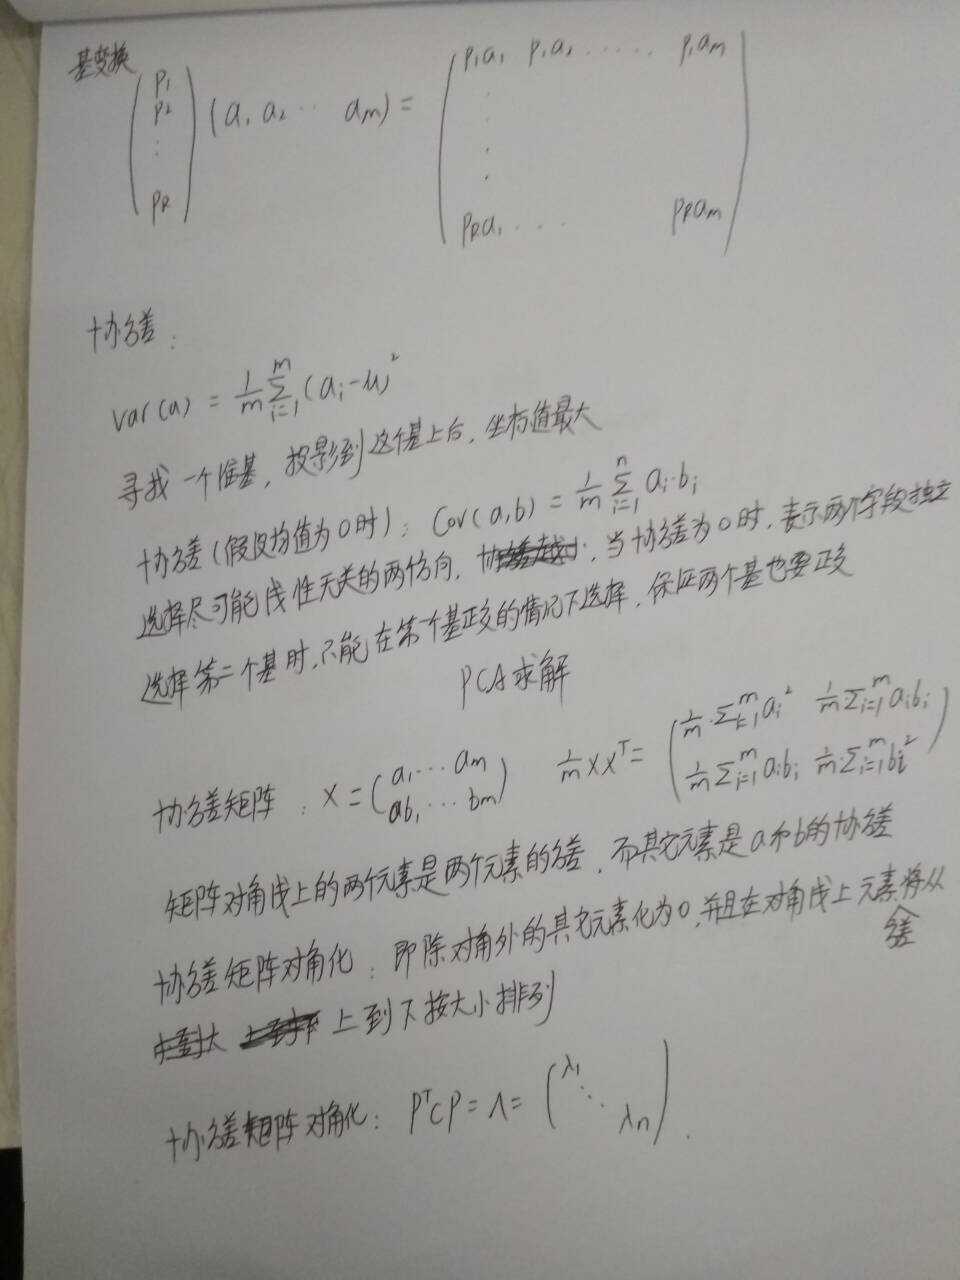 基变换
(p₁ p₂ ⋮ p_R) (a₁ a₂ ··· a_m) = (p₁a₁ p₁a₂ ······ p₁a_m ⋮ p_Ra₁ ··· p_Ra_m)
协方差：
var(a) = 1/m Σ_{i=1}^{m} (a_i-μ)²
寻找一个准基，投影到这个基上后，坐标值最大
协方差(假设均值为0时)：Cov(a,b) = 1/m Σ_{i=1}^{n} a_i·b_i
选择尽可能线性无关的两个方向，当协方差为0时，表示两个字段独立
选择第二个基时，只能在第一个基正交的情况下选择，保证两个基也要正交
PCA求解
协方差矩阵：X = (a₁ ··· a_m ; b₁ ··· b_m) 1/m XXᵀ = (1/m·Σ_{i=1}^{m} a_i² 1/m Σ_{i=1}^{m} a_ib_i ; 1/m Σ_{i=1}^{m} a_ib_i 1/m Σ_{i=1}^{m} b_i²)
矩阵对角线上的两个元素是两个元素的方差，而其它元素是a和b的协方差
协方差矩阵对角化：即除对角外的其它元素化为0，并且在对角线上元素将从
方差
上到下按大小排列
协方差矩阵对角化：PᵀCP = Λ = (λ₁ ⋱ λn).